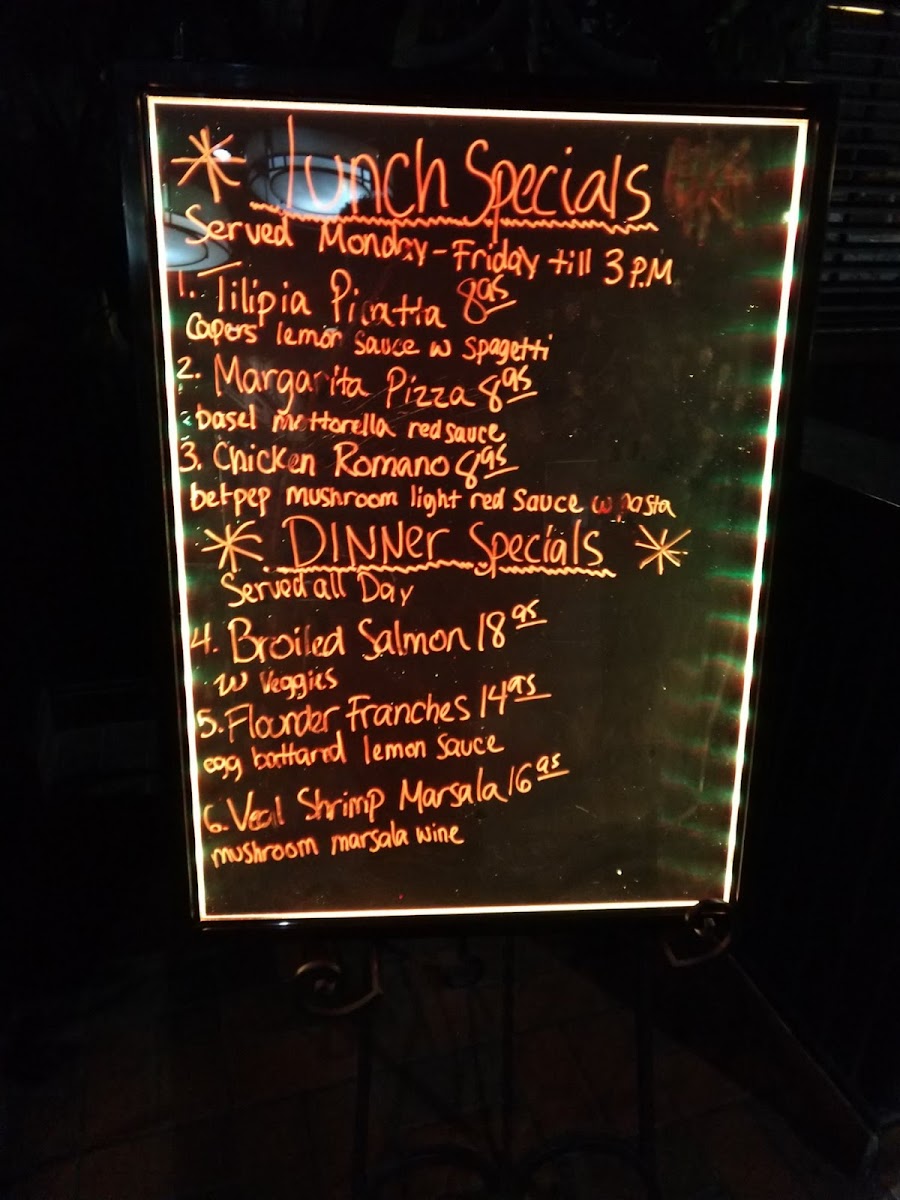 Lunch Specials
Served Monday-Friday till 3 P.M
1. Tilipia Picatta 8.95
Capers lemon sauce w spagetti
2. Margarita Pizza 8.95
basel mottorella red sauce
3. Chicken Romano 8.95
bel-pep mushroom light red sauce w pasta
DINNer Specials
Served all Day
4. Broiled Salmon 18.95
w veggies
5. Flounder Franches 14.95
egg battared lemon sauce
6. Veal Shrimp Marsala 16.95
mushroom marsala wine